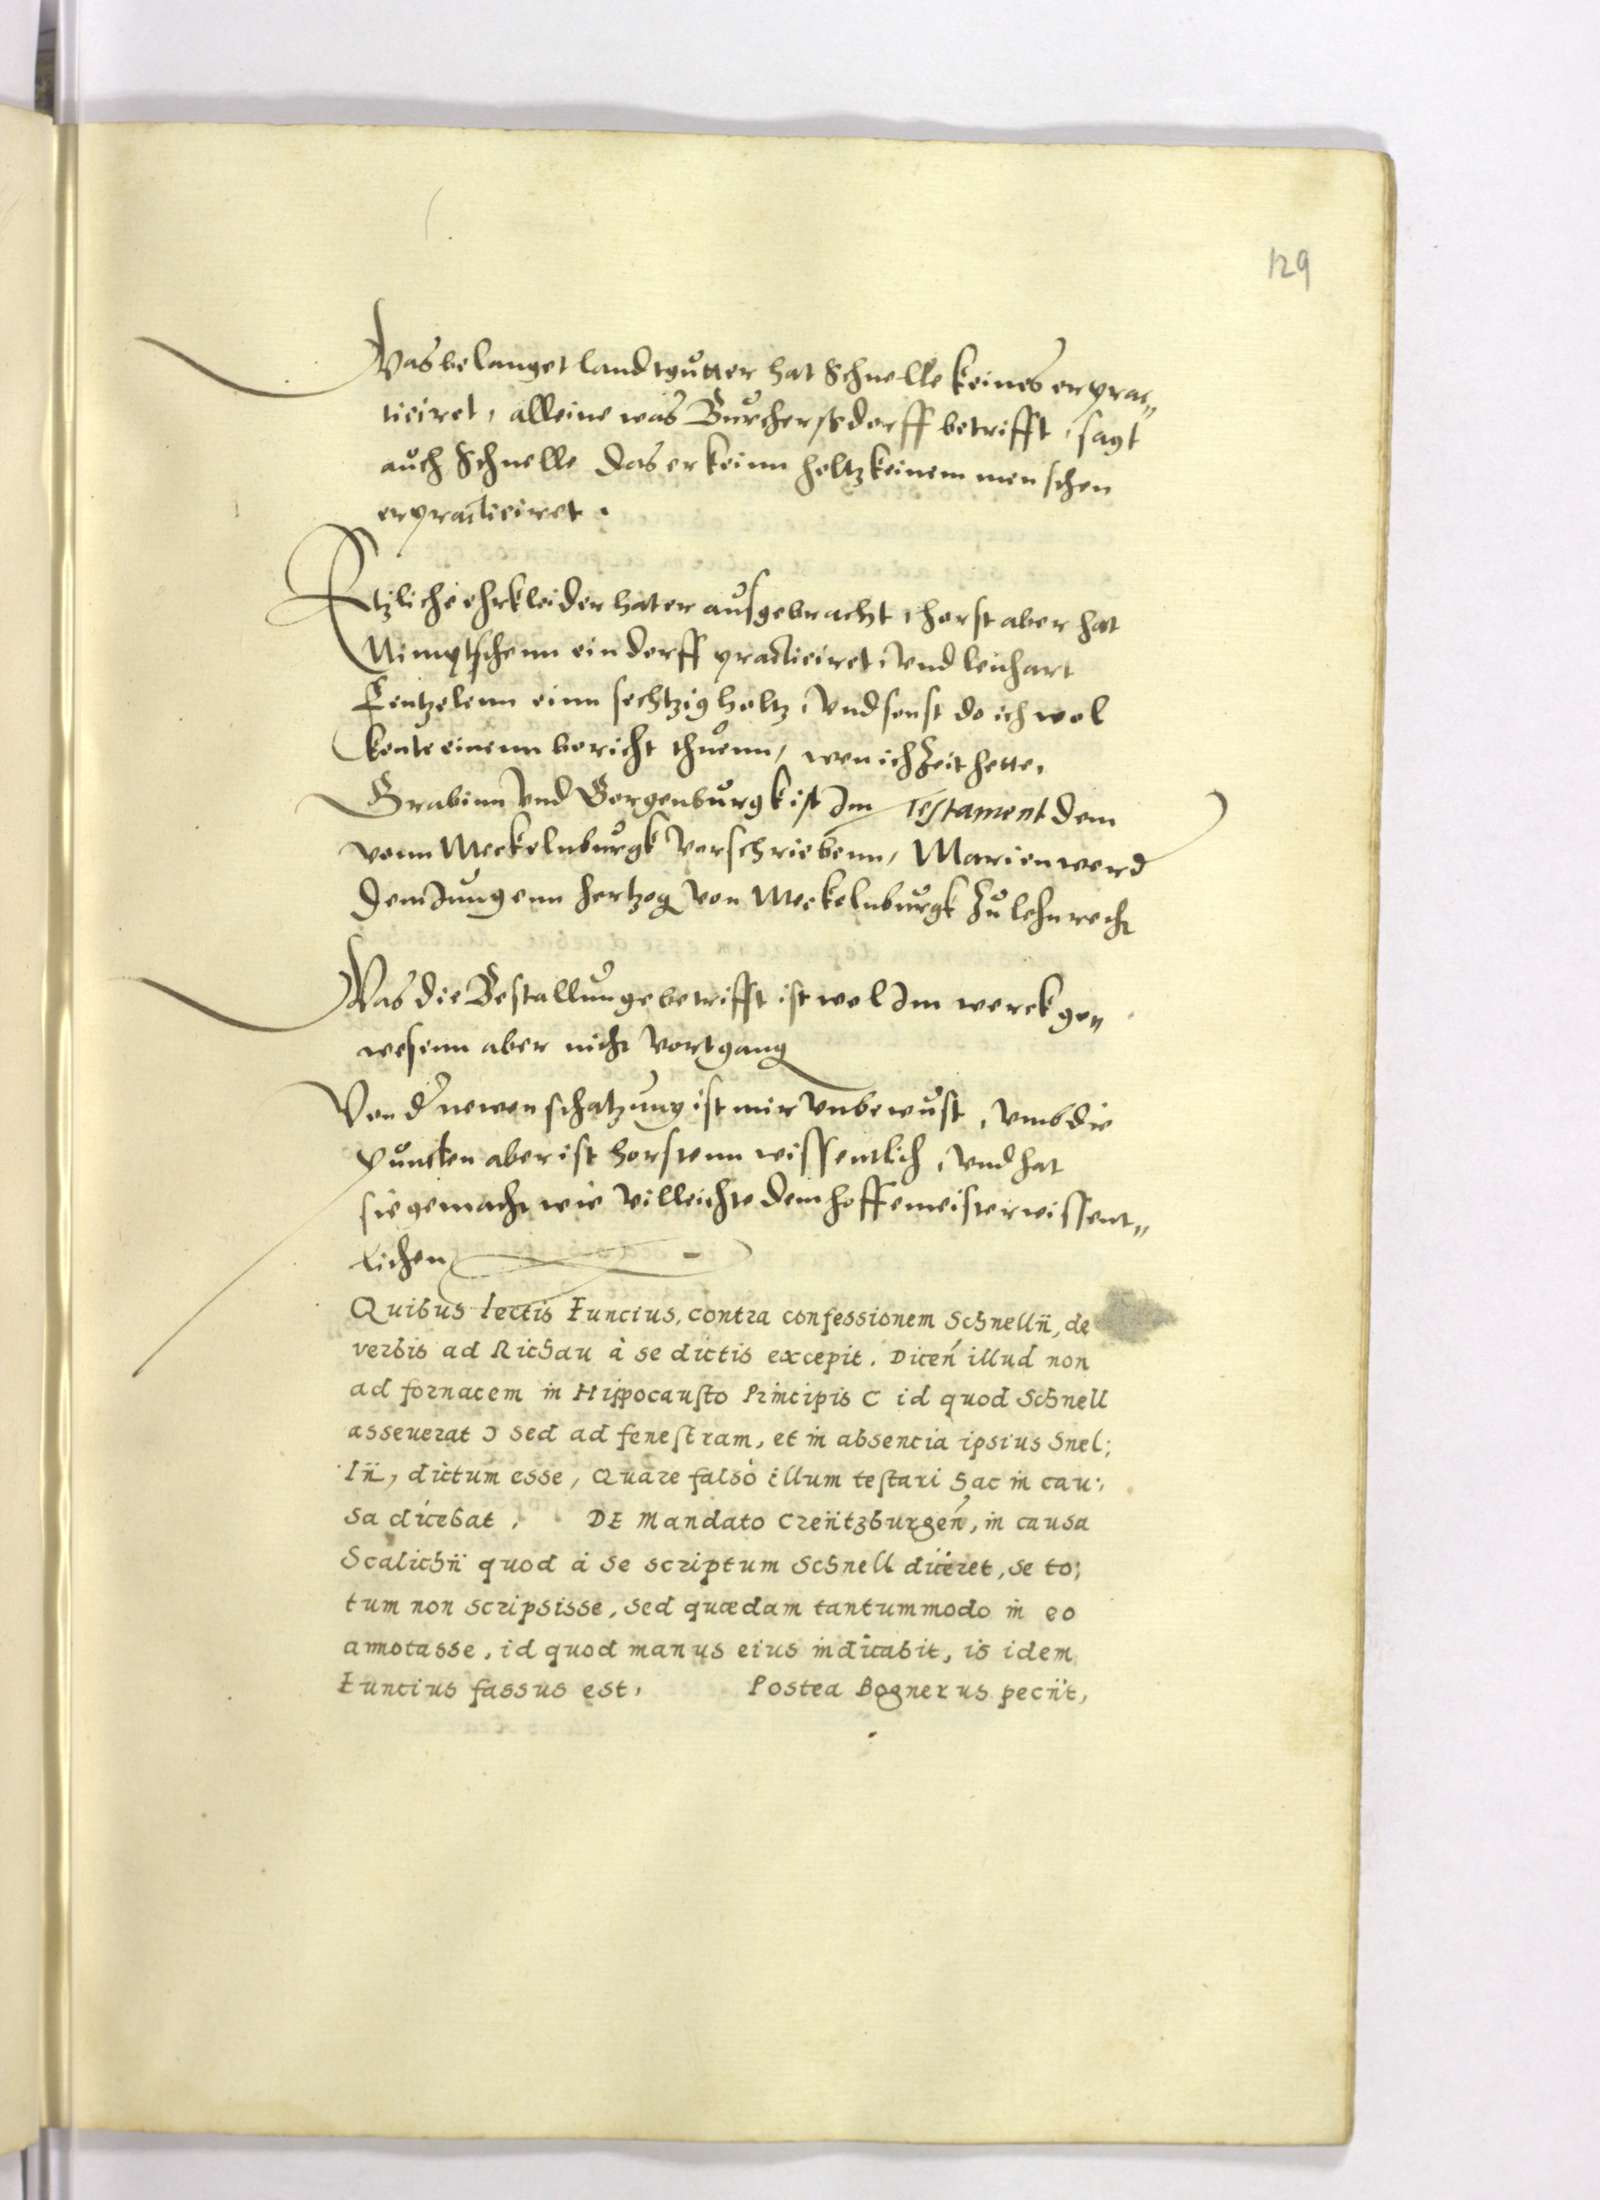 129
Was belanget landtgutter hat Schnelle keines erprac„
ticiret, alleine was Burcherßdorff betrifft, sagt
auch Schnelle das er keinn holtz keinem menschen
erpracticiret.
Etzliche ehrkleider hat er ausgebracht, horst aber hat
Nimptschenn ein dorff practiciret, Vnd leichart
Centzelenn einn sechtzig holtz, Vnd sonst do ich wol
konte einenn bericht thuenn, wen ich Zeit hette,
Grabinn Vnd Gorgenburgk ist Im Testament dem
vonn Meckelnburgk Vorschriebenn, Marienwerd
dem Jungenn hertzog Von Meckelnburgk Zu lehnrecht
Was die Bestallunge betrifft ist wol Im werck ge„
wesenn aber nicht Vortgang
Von d' newen schatzung ist mir Vnbewust, Vmb die
puncten aber ist horstenn wissentlich, Vnd hat
sie gemacht wie Villeichte dem hoffemeister wissent„
lichen
Quibus lectis Funcius, contra confessionem Schnellii, de
verbis ad Richau à se dictis excepit. Dicen illud non
ad fornacem in Hippocausto Principis ( id quod Schnell
asseuerat ) sed ad fenestram, et in absencia ipsius Snel;
lii, dictum esse, Quare falsò illum testari Hac in cau;
sa dicebat, DE Mandato Creutzburgen, in causa
Scalichii quod à se scriptum Schnell diceret, se to;
tum non scripsisse, sed quædam tantummodo in eo
annotasse, id quod manus eius indicabit, is idem
Funcius fassus est, Postea Bognerus peciit,